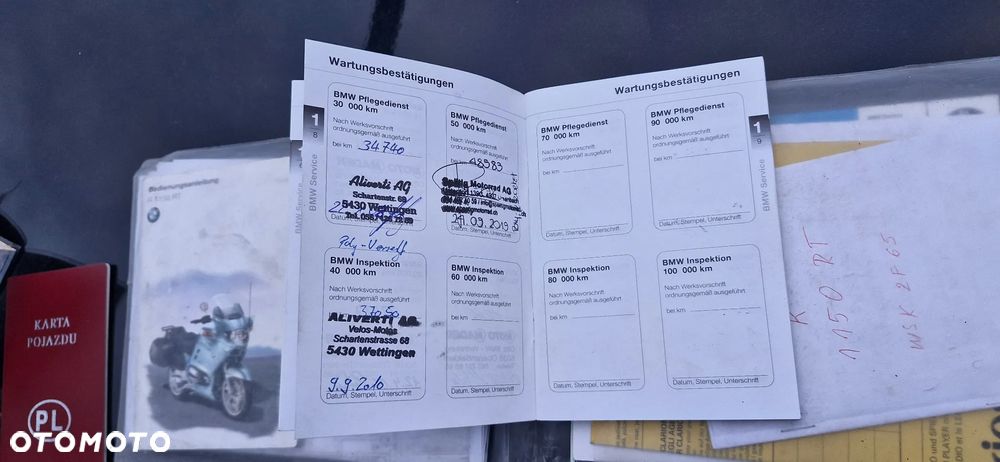 Wartungsbestätigungen
1
8
BMW Service
BMW Pflegedienst
30 000 km
Nach Werksvorschrift
ordnungsgemäß ausgeführt
bei km 34740
Aliverti AG
Schartenstr. 69
5430 Wettingen
Datum, Stempel, Unterschrift
BMW Pflegedienst
50 000 km
Nach Werksvorschrift
ordnungsgemäß ausgeführt
bei km 48983
Motorrad AG
24.09.2019
Datum, Stempel, Unterschrift
BMW Inspektion
40 000 km
Nach Werksvorschrift
ordnungsgemäß ausgeführt
ALIVERTI AG
Velos-Motos
Schartenstrasse 68
5430 Wettingen
9.9.2010
Datum, Stempel, Unterschrift
BMW Inspektion
60 000 km
Nach Werksvorschrift
ordnungsgemäß ausgeführt
bei km
Datum, Stempel, Unterschrift
Wartungsbestätigungen
1
9
BMW Service
BMW Pflegedienst
70 000 km
Nach Werksvorschrift
ordnungsgemäß ausgeführt
bei km
Datum, Stempel, Unterschrift
BMW Pflegedienst
90 000 km
Nach Werksvorschrift
ordnungsgemäß ausgeführt
bei km
Datum, Stempel, Unterschrift
BMW Inspektion
80 000 km
Nach Werksvorschrift
ordnungsgemäß ausgeführt
bei km
Datum, Stempel, Unterschrift
BMW Inspektion
100 000 km
Nach Werksvorschrift
ordnungsgemäß ausgeführt
bei km
Datum, Stempel, Unterschrift
Bedienungsanleitung
KARTA
POJAZDU
PL
1150 RT
WSK 2P65
OTOMOTO